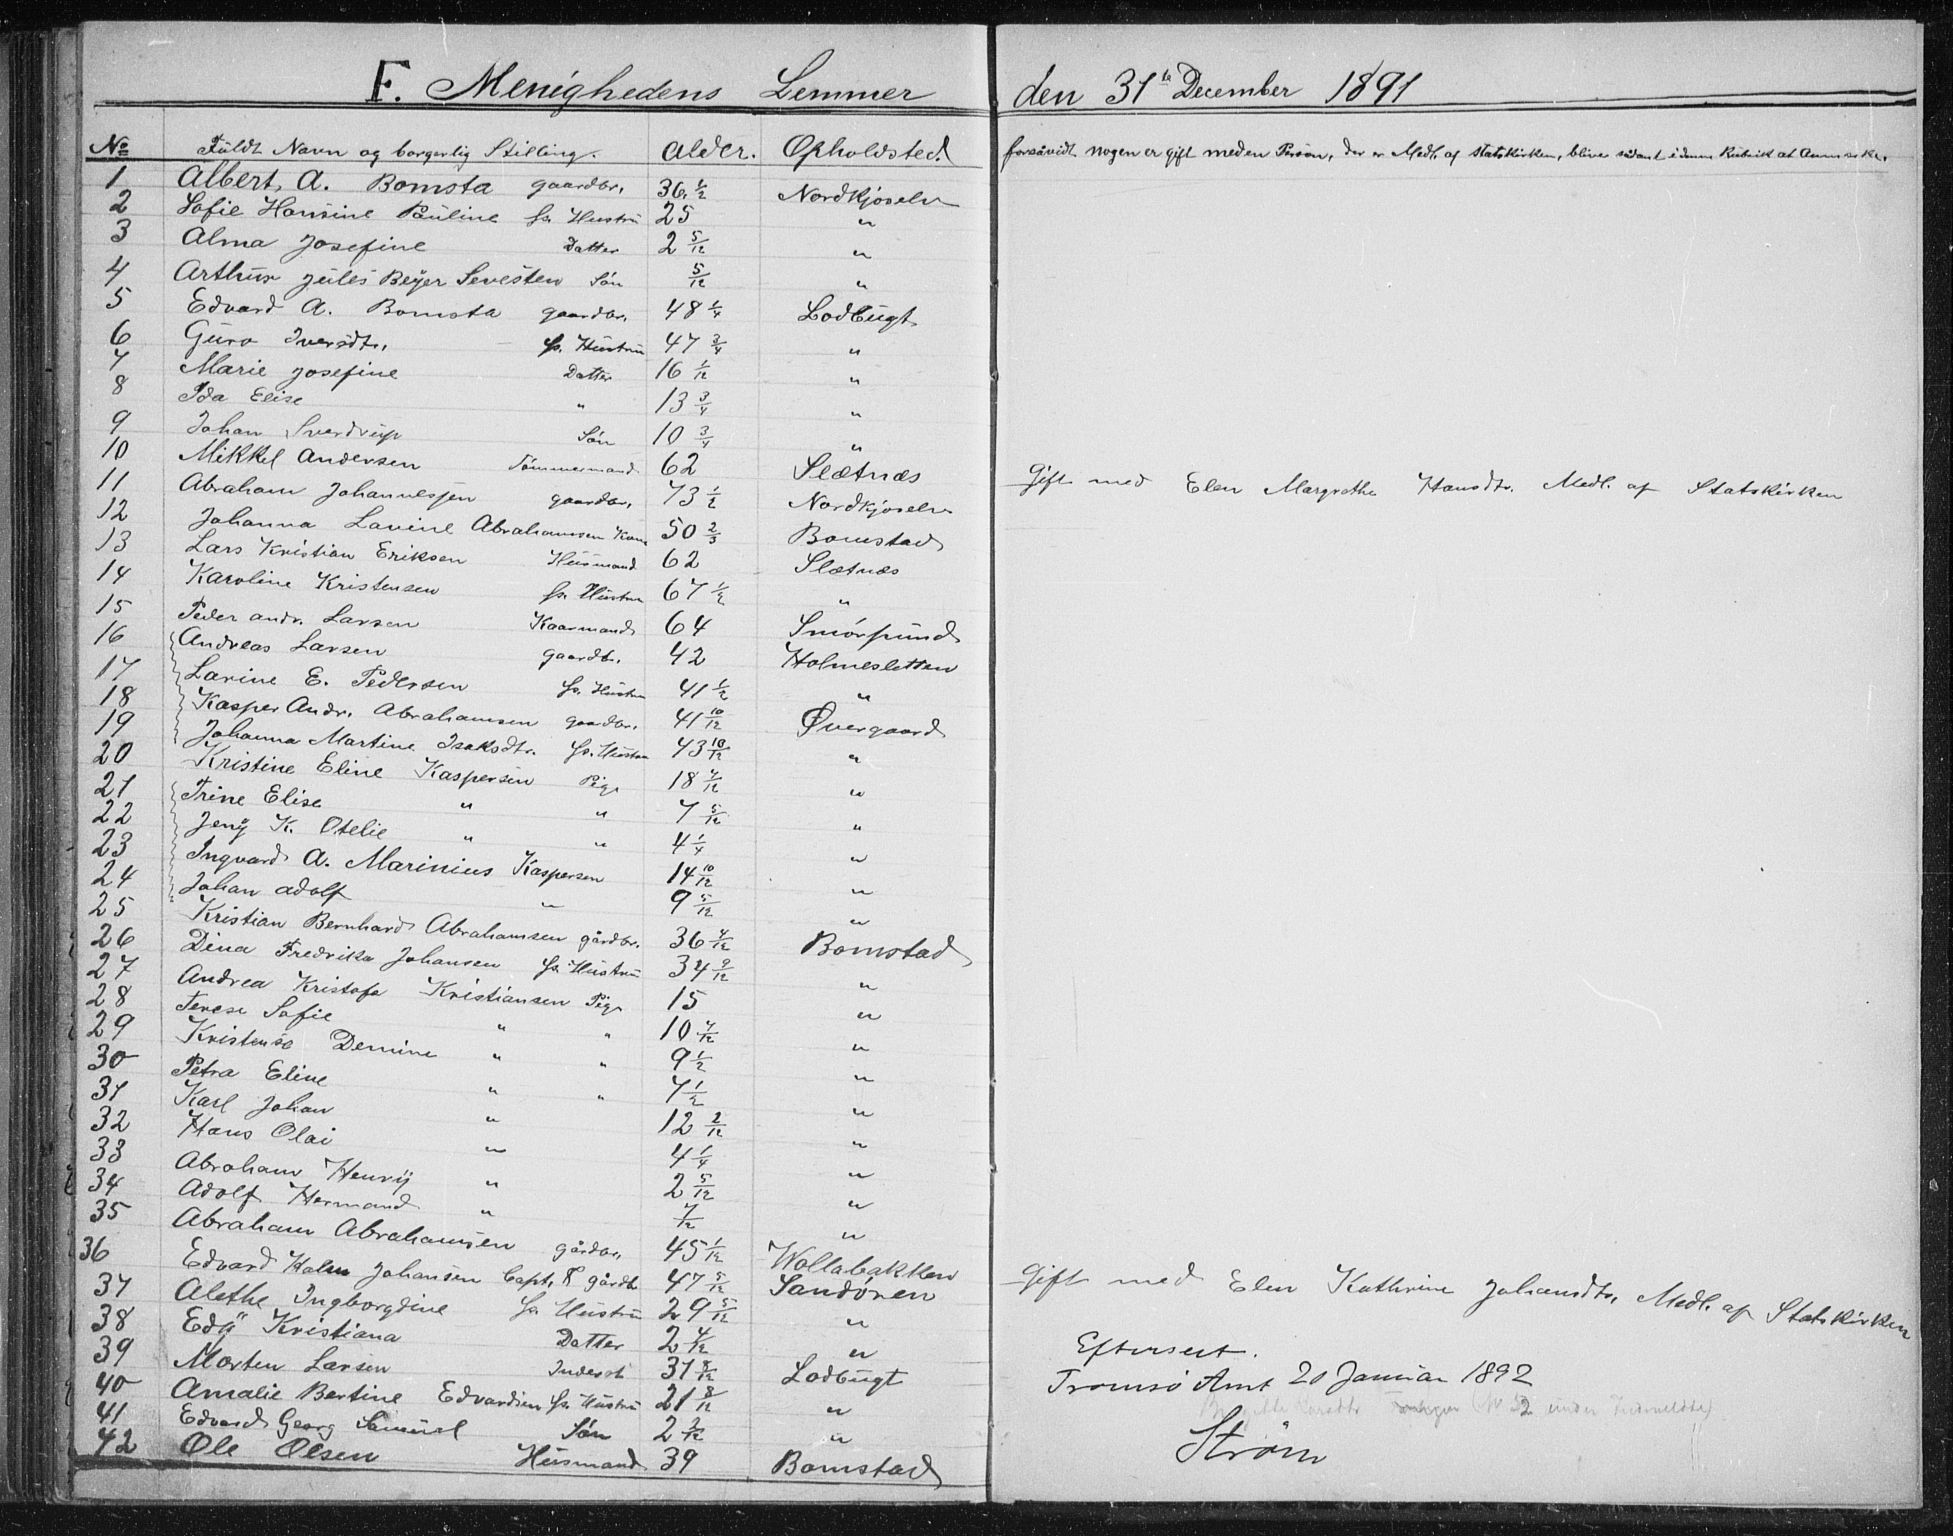 F. Menighedens Lemmer den 31te December 1891
No Fuldt Navn og borgerlig Stilling. Alder. Opholdsted.
forsåvidt nogen er gift med en Person, der er Medl. af Statskirken, blive sådant i denne Rubrik at Anmærke.
1 Albert A. Bomsta gaardbr. 36 1/2 Nordkjoselv
2 Sofie Hansine Pauline hs. Hustru 25 "
3 Alma Josefine Datter 2 5/12 "
4 Arthur Jules Beyer Sevesten Søn 5/12 "
5 Edvard A. Bomsta gaardbr. 48 1/4 Lodbugt
6 Guro Iversdtr. hs. Hustru 47 3/4 "
7 Marie Josefine Datter 16 1/12 "
8 Ida Elise " 13 3/4 "
9 Johan Sverdrup Søn 10 3/4 "
10 Mikkel Andersen Tømmermand 62 Slætnæs
Gift med Elen Margrethe Hansdtr. Medl. af Statskirken
11 Abraham Johannesen gaardbr. 73 1/2 Nordkjoselv
12 Johanna Lavine Abrahamsen Kone 50 2/3 Bomstad
13 Lars Kristian Eriksen Husmand 62 Slætnæs
14 Karoline Kristensen hs. Hustru 67 1/2 "
15 Peder Andr. Larsen Kaarmand 64
16 Andreas Larsen gaardbr. 42 Holmesletten
17 Lavine E. Pedersen hs. Hustru 41 1/2 "
18 Kasper Andr. Abrahamsen gaardbr. 41 10/12 Øvergaard
19 Johanna Martine Isaksdtr. hs. Hustru 43 10/12 "
20 Kristine Eline Kaspersen Pige 18 7/12 "
21 Trine Elise " " 7 5/12 "
22 Jeny K. Otelie " " 4 1/4 "
23 Ingvard A. Marinius Kaspersen 14 10/12 "
24 Johan Adolf " 9 5/12 "
25 Kristian Bernhard Abrahamsen gårdbr. 36 4/12 Bomstad
26 Dina Fredrikke Johansen hs. Hustru 34 9/12 "
27 Andrea Kristofa Kristiansen Pige 15 "
28 Terese Sofie " " 10 7/12 "
29 Kristense Demine " " 9 1/2 "
30 Petra Eline " " 7 1/2 "
31 Karl Johan " 12 2/12 "
32 Hans Olai " 4 1/4 "
33 Abraham Henrÿ " 2 5/12 "
34 Adolf Hermand " 7/12 "
35 Abraham Abrahamsen gårdbr. 45 1/12 Wollabakken
Gift med Elen Kathrine Johansdtr. Medl. af Statskirken
36 Edvard Holm Johansen Capt. & gårdbr 47 5/12 Sandøren
37 Alethe Ingborgdine hs. Hustru 29 5/12 "
38 Edÿ Kristiana Datter 2 4/12 "
39 Morten Larsen Inderst 31 8/12 Lodbugt
40 Amalie Bertine Edvardsen hs. Hustru 21 8/12 "
41 Edvard Georg Samuel Søn 2 2/12 "
42 Ole Olsen Husmand 39 Bomstad
Efterseet.
Tromsø Amt 20 Januar 1892
Larsdtr (No 32 under Indmeldte)
Strøm